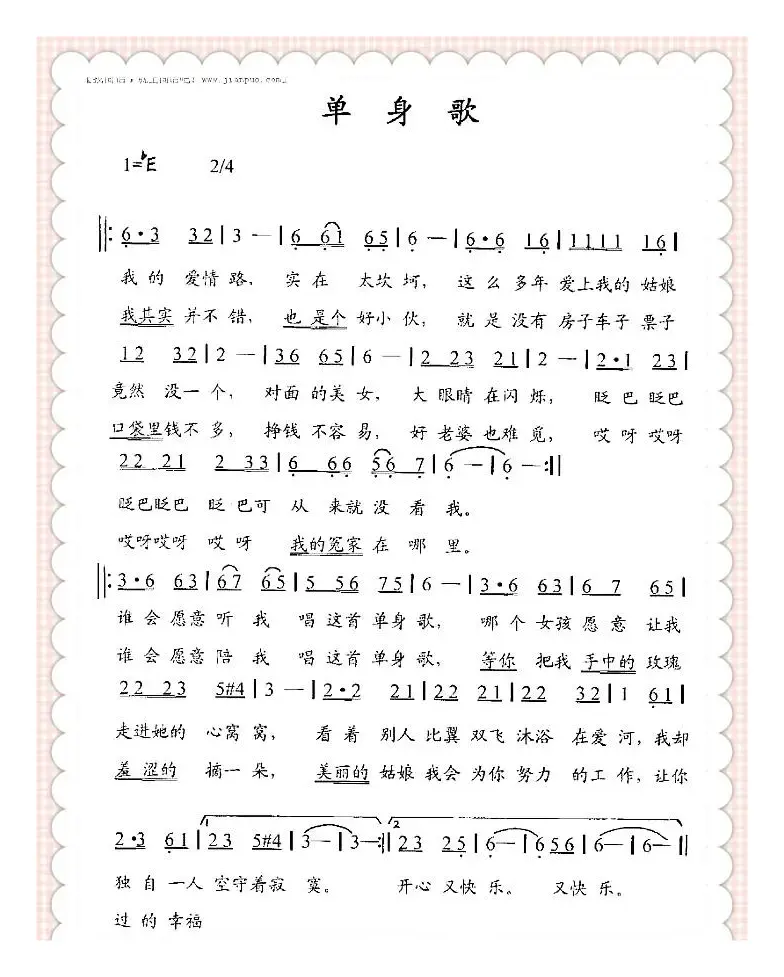 www.jianpu8.com
单身歌
1=♭E 2/4
‖: 6·3 32 | 3 — | 6 61 65 | 6 — | 6·6 16 | 1111 16 |
我的 爱情路, 实在 太坎坷, 这么多年 爱上我的 姑娘
我其实 并不错, 也是个 好小伙, 就是没有 房子车子 票子
12 32 | 2 — | 36 65 | 6 — | 2 23 21 | 2 — | 2·1 23 |
竟然 没一个, 对面的美女, 大眼睛在闪烁, 眨巴眨巴
口袋里钱不多, 挣钱不容易, 好老婆也难觅, 哎呀哎呀
22 21 2 33 | 6 66 56 7 | 6 — | 6 — :‖
眨巴眨巴 眨巴可 从来就没看我。
哎呀哎呀 哎呀 我的冤家在哪里。
‖: 3·6 63 | 67 65 | 5 56 75 | 6 — | 3·6 63 | 6 7 65 |
谁会愿意听我 唱这首单身歌, 哪个女孩愿意让我
谁会愿意陪我 唱这首单身歌, 等你把我手中的玫瑰
22 23 5#4 | 3 — | 2·2 21 | 22 21 | 22 32 | 1 61 |
走进她的 心窝窝, 看着 别人比翼 双飞沐浴 在爱河, 我却
羞涩的 摘一朵, 美丽的 姑娘我会为你努力 的工作, 让你
2·3 61 | 23 5#4 | 3 — | 3 — :‖ 2 23 25 | 6 — | 6 56 | 6 — | 6 — ‖
独自一人空守着寂寞。 开心又快乐。 又快乐。
过的幸福